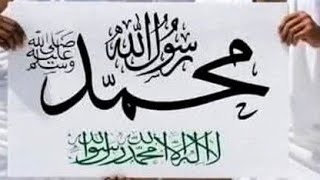 محمد رسول الله
صلى الله عليه وسلم
لا اله الا الله محمد رسول الله